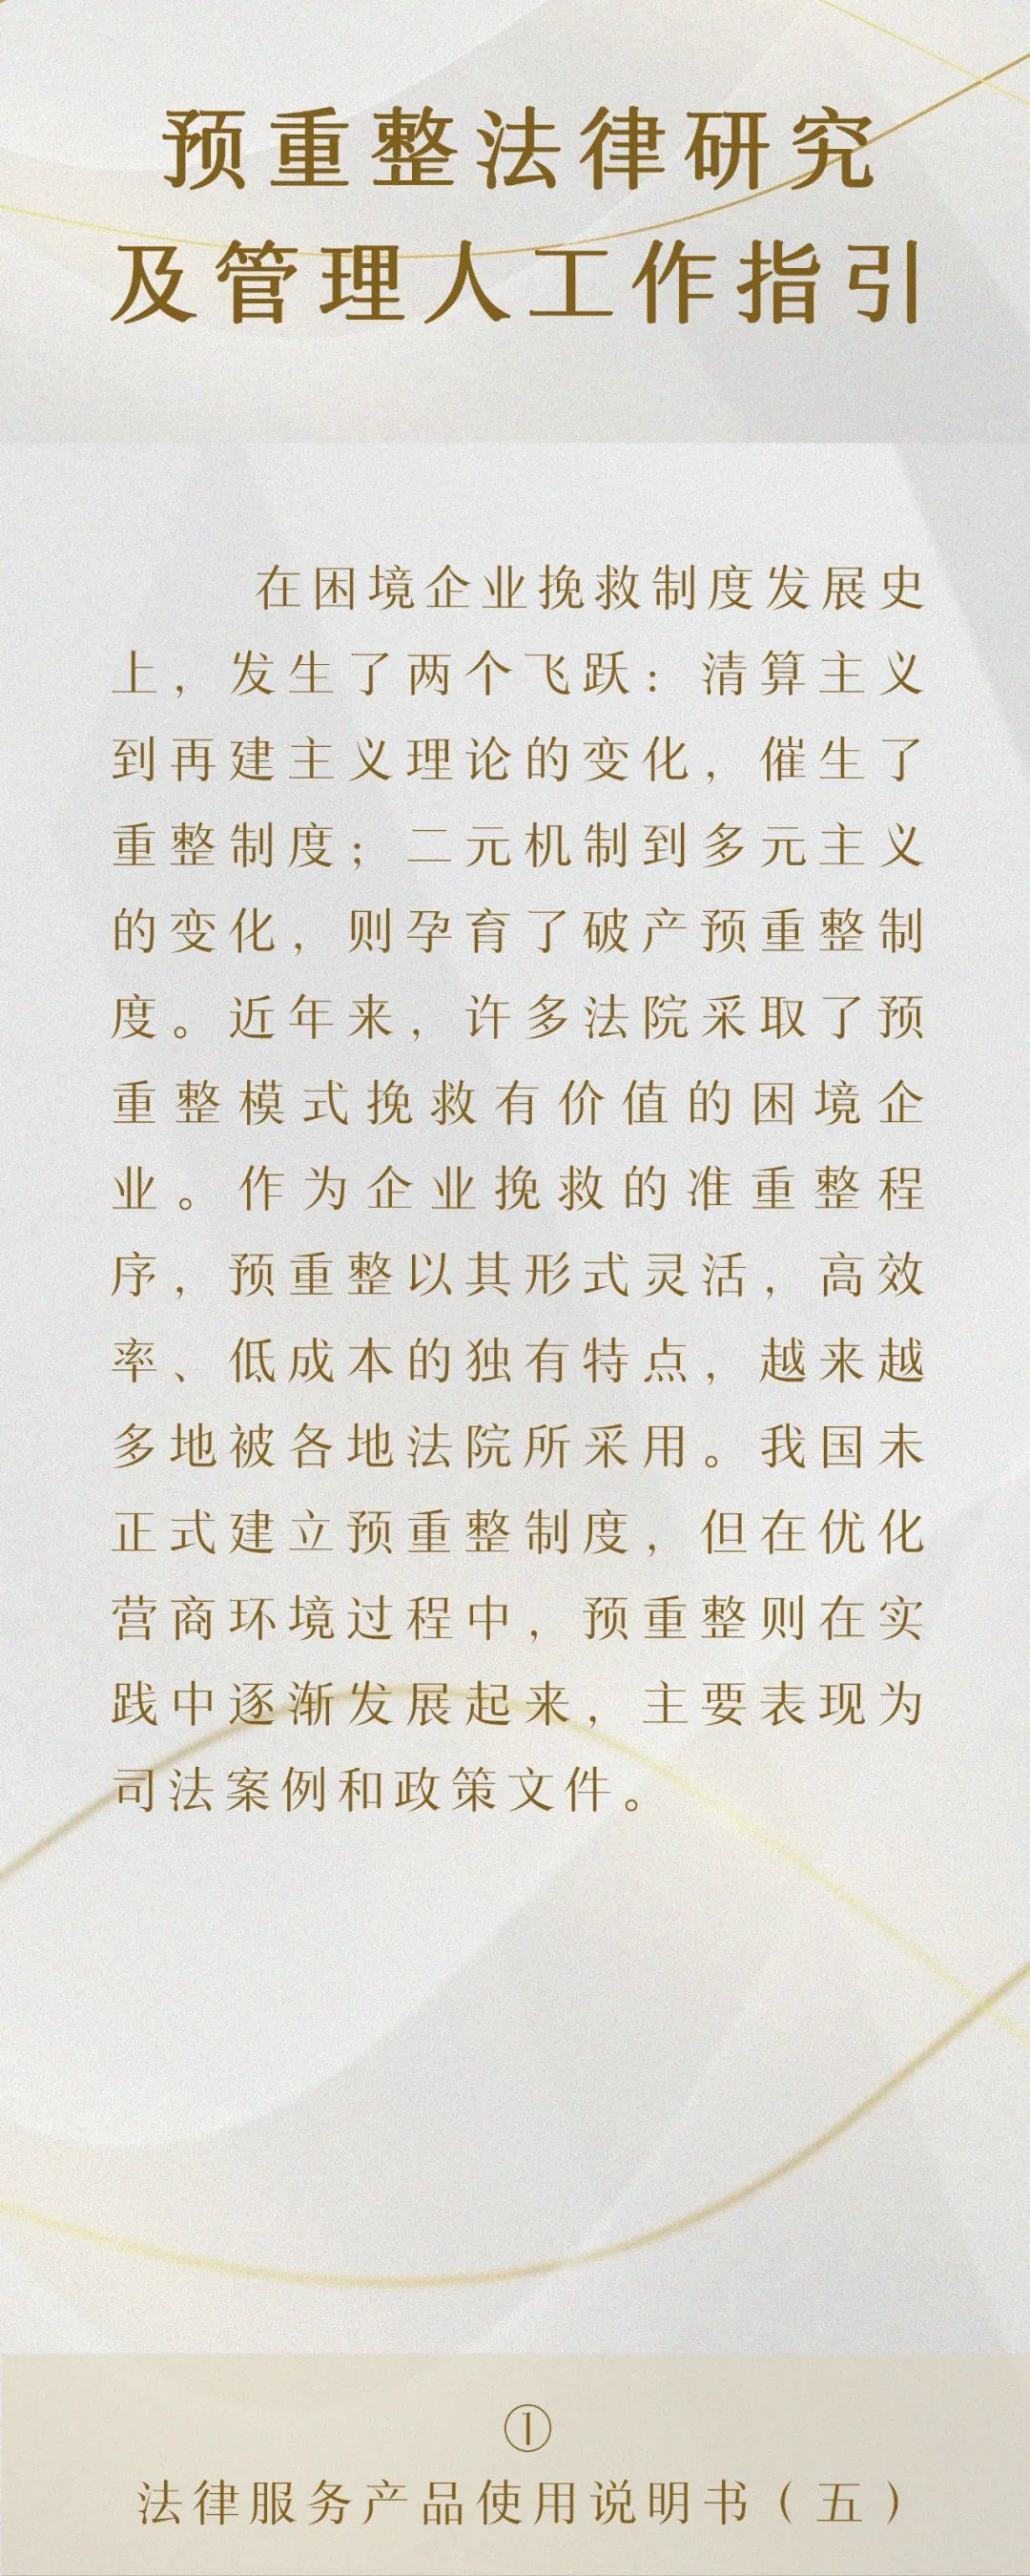 预重整法律研究
及管理人工作指引
在困境企业挽救制度发展史
上，发生了两个飞跃：清算主义
到再建主义理论的变化，催生了
重整制度；二元机制到多元主义
的变化，则孕育了破产预重整制
度。近年来，许多法院采取了预
重整模式挽救有价值的困境企
业。作为企业挽救的准重整程
序，预重整以其形式灵活，高效
率、低成本的独有特点，越来越
多地被各地法院所采用。我国未
正式建立预重整制度，但在优化
营商环境过程中，预重整则在实
践中逐渐发展起来，主要表现为
司法案例和政策文件。
①
法律服务产品使用说明书（五）